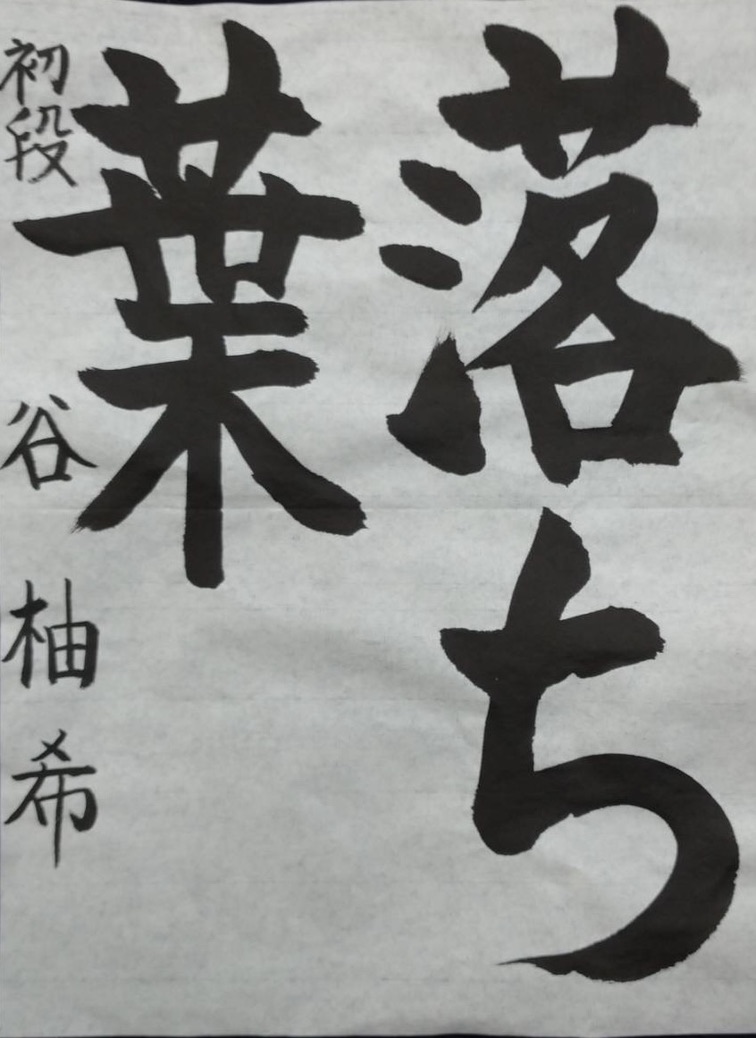 落ち
葉
初段 谷 柚希